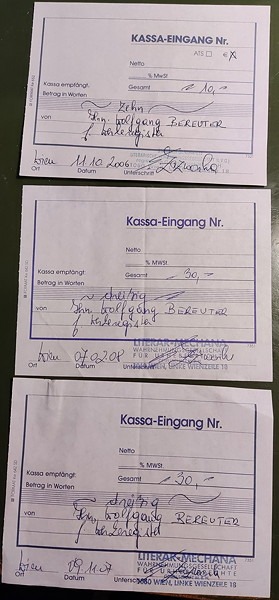 KASSA-EINGANG Nr.
ATS € X
Netto
% MwSt
Kassa empfängt: Gesamt 10,-
Betrag in Worten
zehn
von Hrn. Wolfgang BEREUTER
f.
Wien 11.10.2006
Ort Datum Unterschrift
Kassa-Eingang Nr.
Netto
% MWSt.
Kassa empfängt: Gesamt 30,-
Betrag in Worten
dreißig
von Hrn. Wolfgang BEREUTER
f.
LITERAR-MECHANA
WAHRNEHMUNGSGESELLSCHAFT
Wien 07.02.08 FÜR
Ort Datum WIEN, LINKE WIENZEILE 18
Kassa-Eingang Nr.
Netto
% MWSt.
Kassa empfängt: Gesamt 30,-
Betrag in Worten
dreißig
von Hrn. Wolfgang BEREUTER
f.
LITERAR-MECHANA
WAHRNEHMUNGSGESELLSCHAFT
Wien FÜR
Ort Datum WIEN, LINKE WIENZEILE 18